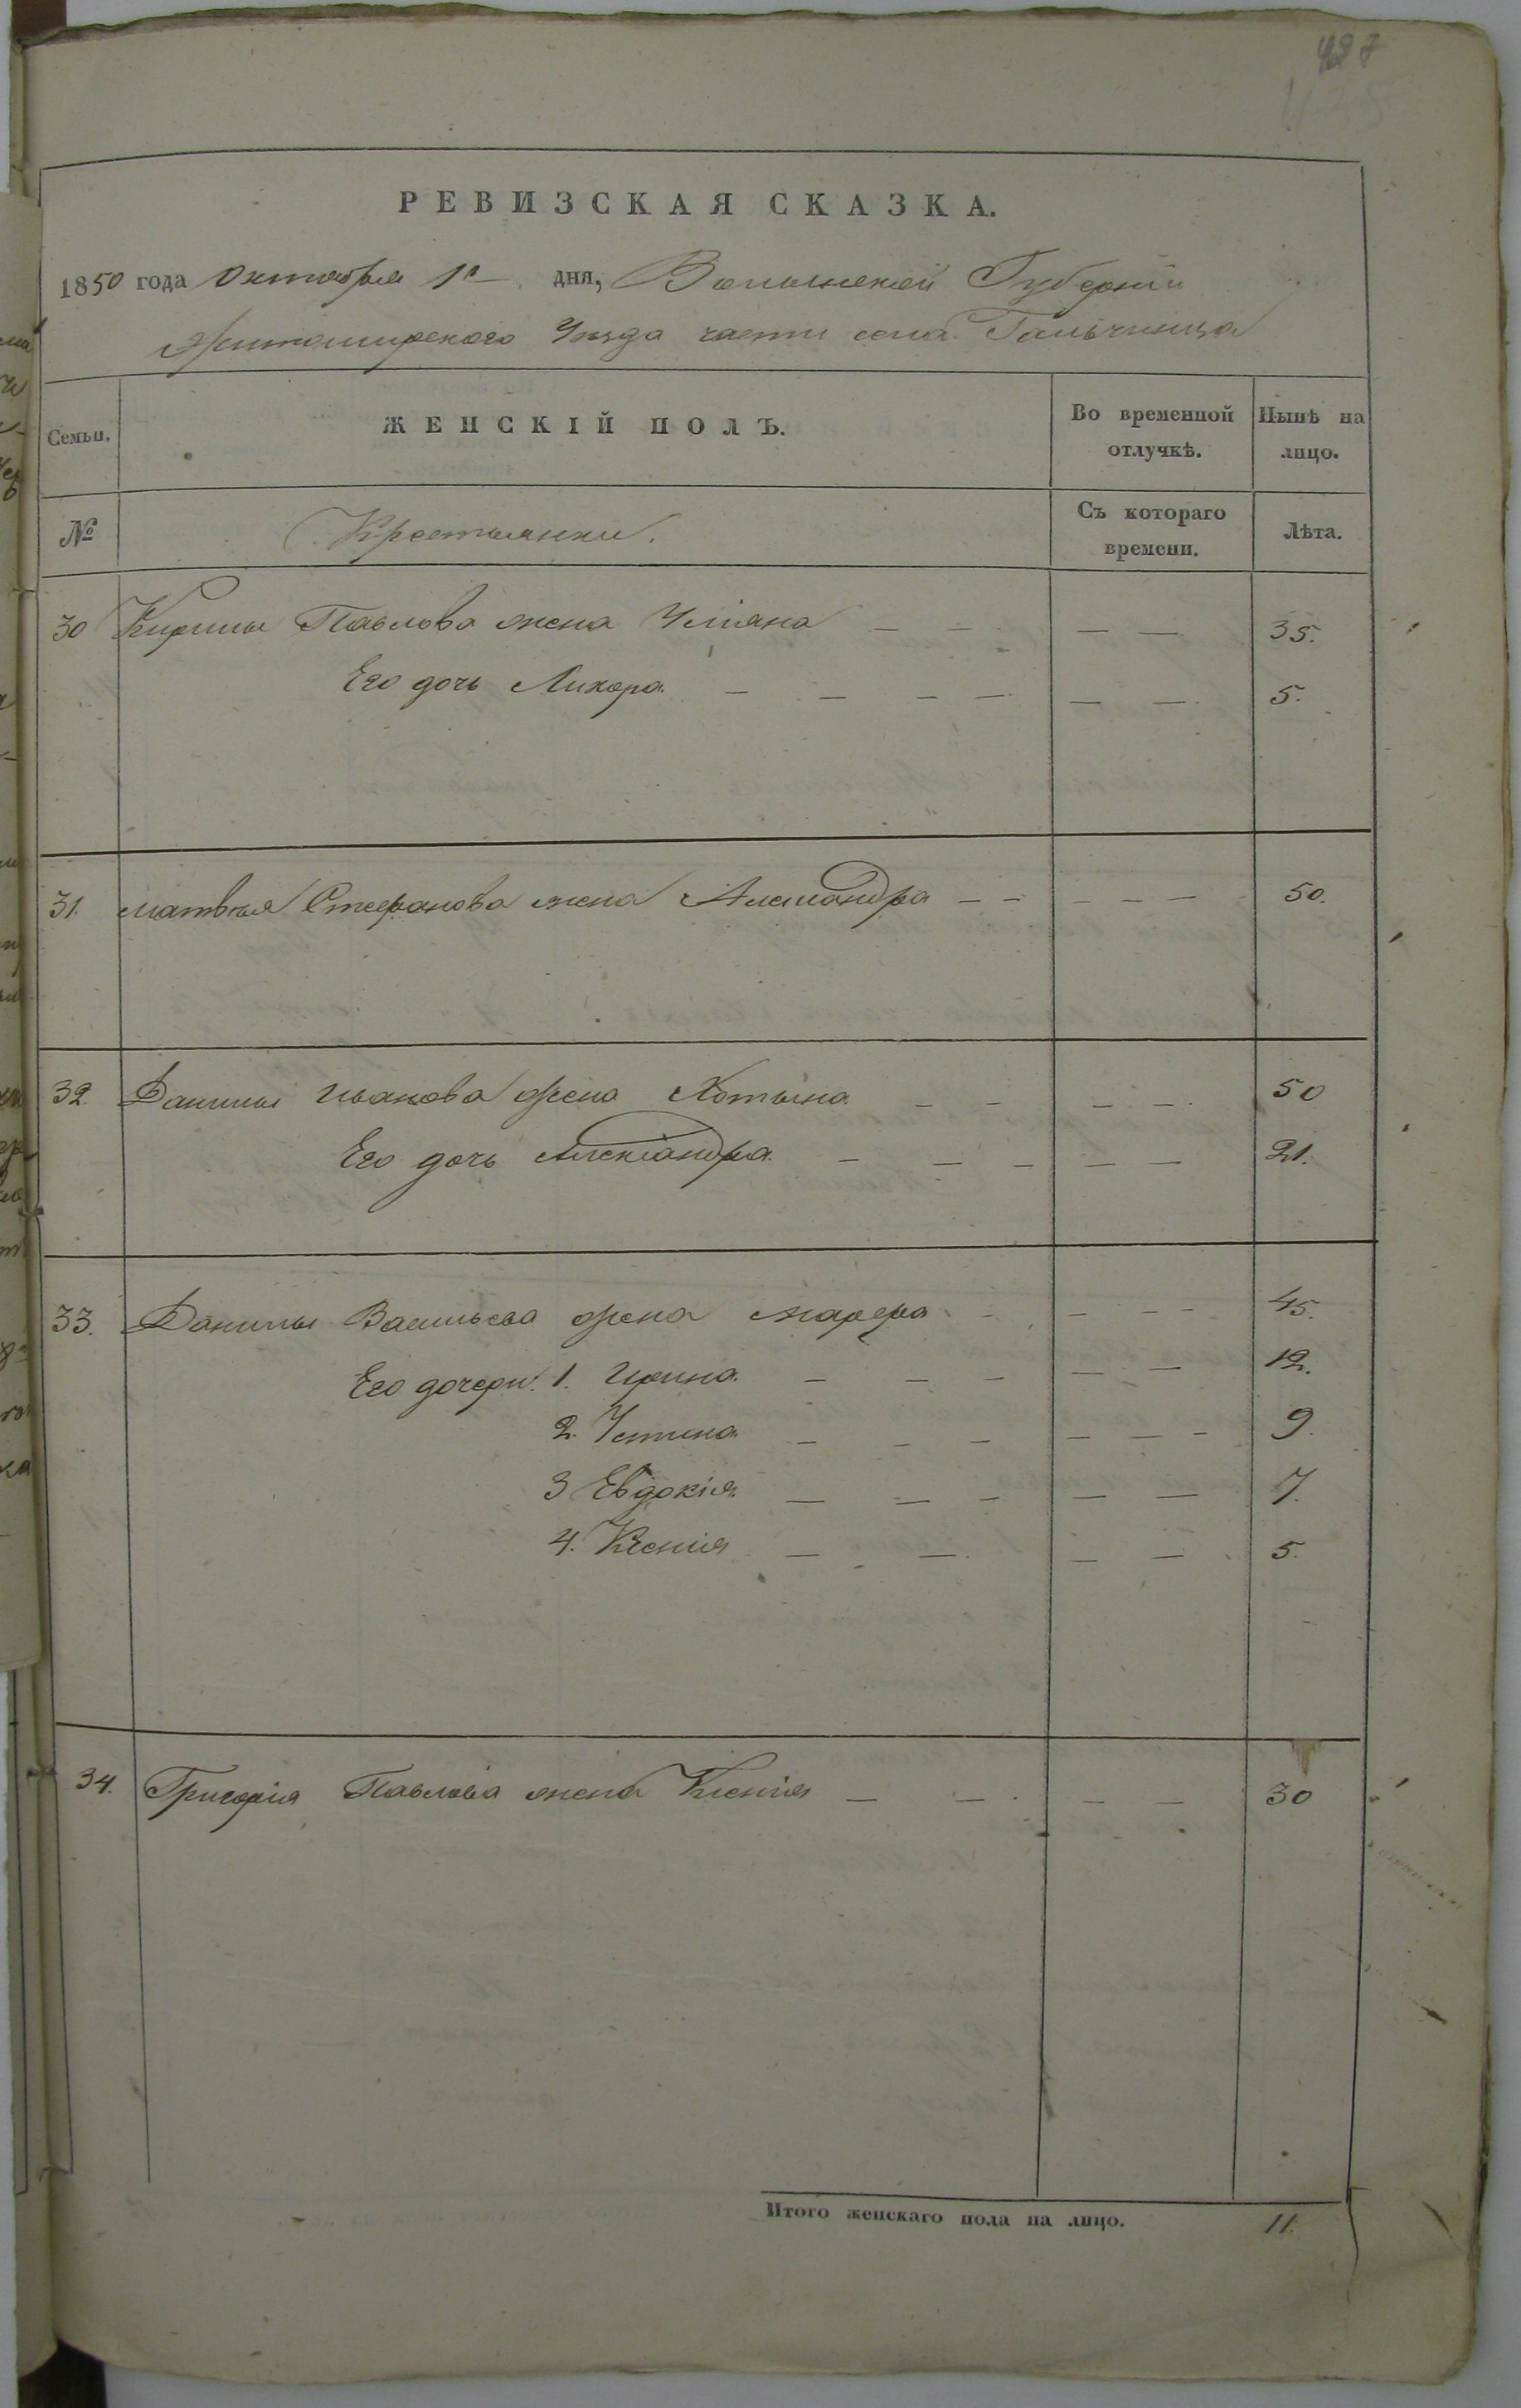 427
РЕВИЗСКАЯ СКАЗКА.
1850 года Октября 1го дня, Волынской Губернии
Житомирского Уезда части села Гальчинца
Семьи. ЖЕНСКІЙ ПОЛЪ. Во временной отлучкѣ. Нынѣ на лицо.
№ Крестьянки. Съ котораго времени. Лѣта.
30 Кирилы Павлова жена Уліяна — — — — 35.
Его дочь Лихора — — — — — — 5.
31. Матвѣя Стефанова жена Александра — — — — — 50.
32. Данилы Иванова жена Хотына — — — — 50
Его дочь Александра — — — — — 21.
33. Данилы Васильева жена Марфра — — — — 45.
Его дочери: 1. Ирина — — — — — 12.
2. Устина — — — — — — 9.
3 Евдокія — — — — — 7.
4. Ксенія — — — — 5.
34. Григорія Павлова жена Ксенія — — — — 30
Итого женскаго пола на лицо. 11.